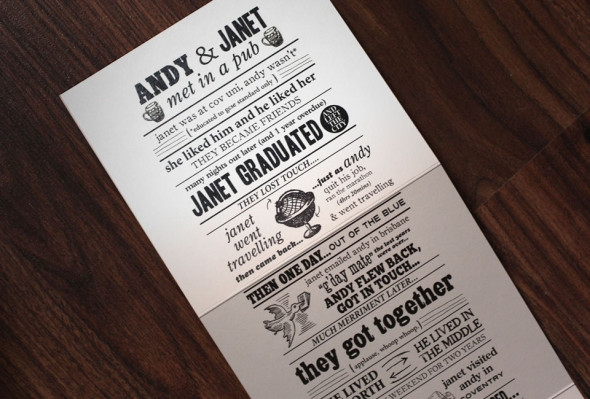 ANDY & JANET
met in a pub
janet was at cov uni, andy wasn't*
{*educated to gcse standard only}
she liked him and he liked her
THEY BECAME FRIENDS
many nights out later (and 1 year overdue)
JANET GRADUATED
THEY LOST TOUCH....
janet
went
travelling
...just as andy
quit his job,
ran the marathon
(4hrs 20mins)
& went travelling
then came back...
THEN ONE DAY... OUT OF THE BLUE
janet emailed andy in brisbane
"g'day mate" the last years
were over...
ANDY FLEW BACK,
GOT IN TOUCH...
MUCH MERRIMENT LATER...
they got together
{applause, whoop whoop.}
HE LIVED IN
THE MIDDLE
LIVED
NORTH
WEEKEND FOR TWO YEARS
janet visited
andy in
COVENTRY